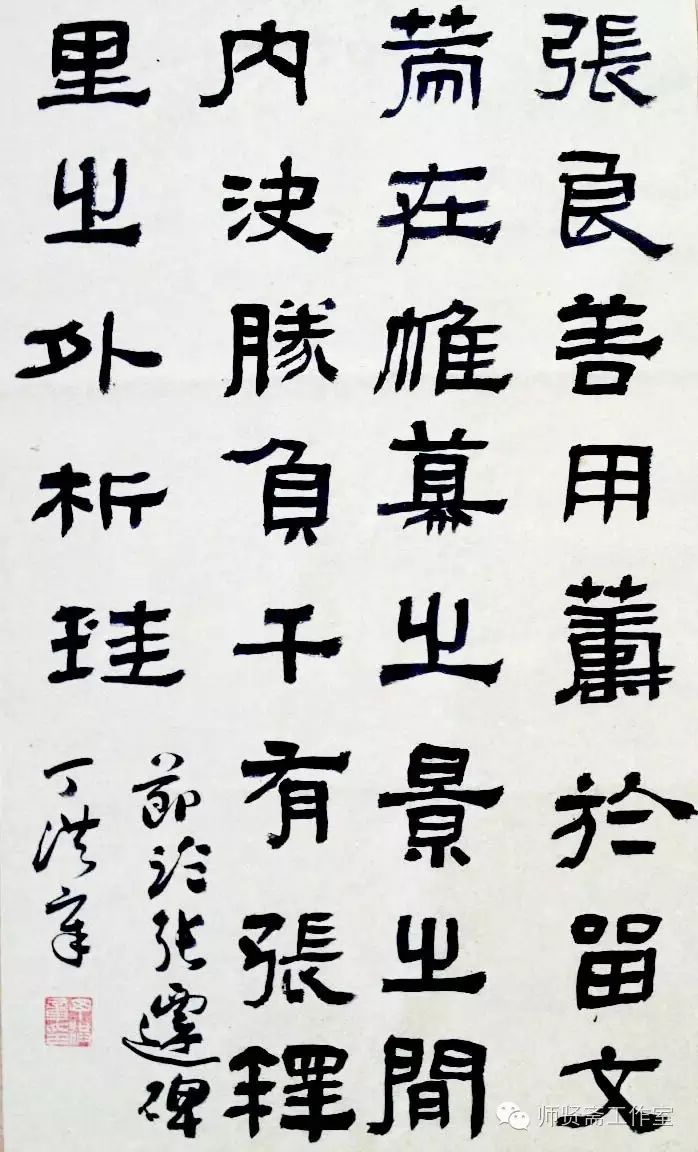 張良善用籌於留文
筞在帷幕之景之間
內決勝負千有張釋
里之外析珪
節臨張遷碑
丁洪章
师贤斋工作室